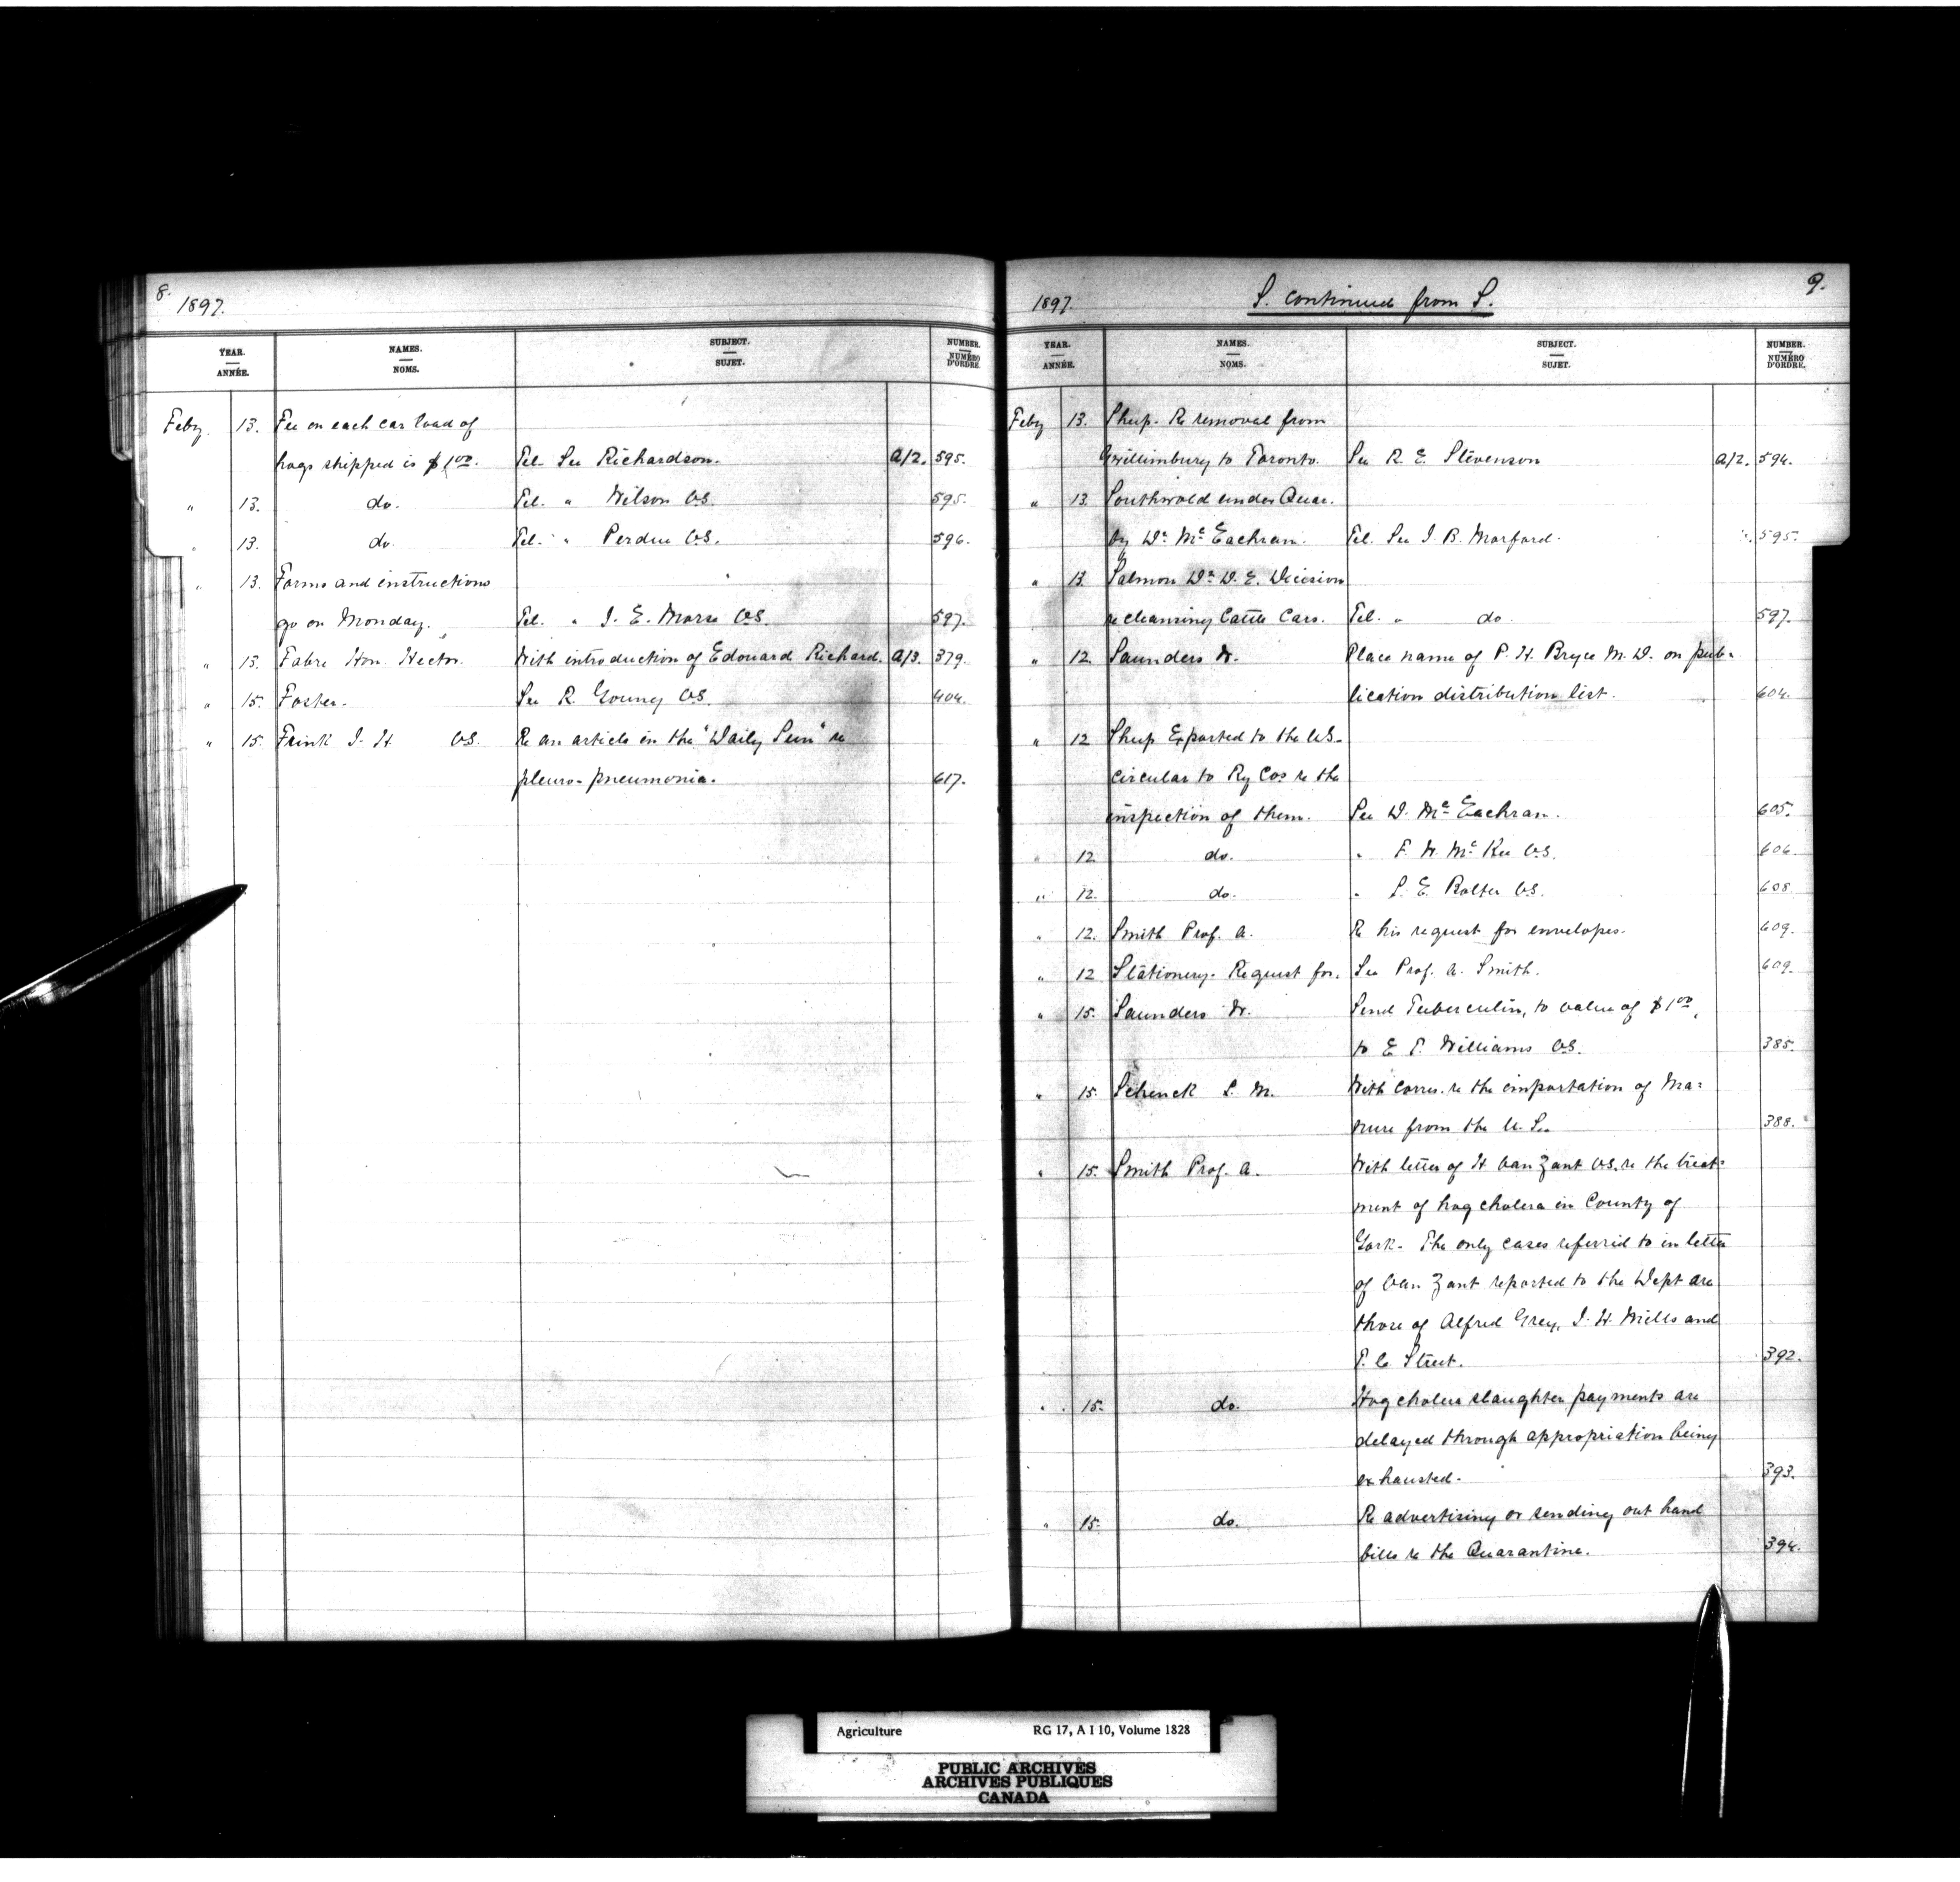 8.
1897.
YEAR. ANNÉE. NAMES. NOMS. SUBJECT. SUJET. NUMBER. NUMÉRO D'ORDRE.
Feby 13. Fee on each car load of
hogs shipped is $1.00. Tel. See Richardson. A/2. 595.
" 13. do. Tel. " Wilson V.S. 595.
" 13. do. Tel. " Perdue V.S. 596.
" 13. Forms and instructions
go on Monday. Tel. " J. E. Morse V.S. 597.
" 13. Fabre Hon. Hector. With introduction of Edouard Richard. A/3. 379.
" 15. Foster. See R. Young V.S. 404.
" 15. Frink J. H. V.S. Re an article in the "Daily Sun" re
pleuro-pneumonia. 617.
1897. S. continued from S. 9.
YEAR. ANNÉE. NAMES. NOMS. SUBJECT. SUJET. NUMBER. NUMÉRO D'ORDRE.
Feby 13. Sheep. Re removal from
Gwillimbury to Toronto. See R. E. Stevenson A/2. 594.
" 13. Southwold under Quar.
by Dr. McEachran. Tel. See J. B. Morford. 595.
" 13. Salmon Dr. D. E. Decision
re cleansing Cattle Cars. Tel. " do. 597.
" 12. Saunders W. Place name of P. H. Bryce M.D. on pub-
lication distribution list. 604.
" 12 Sheep Exported to the U.S.
circular to Ry Cos re the
inspection of them. See D. McEachran. 605.
" 12 do. " F. W. McKee V.S. 606.
" 12. do. " S. E. Bolter V.S. 608.
" 12. Smith Prof. A. Re his request for envelopes. 609.
" 12 Stationery. Request for. See Prof. A. Smith. 609.
" 15. Saunders W. Send Tuberculin, to value of $1.00,
to E. P. Williams V.S. 385.
" 15. Schenck S. M. With corres. re the importation of Ma-
nure from the U.S. 388.
" 15. Smith Prof. A. With letter of H Van Zant V.S. re the treat-
ment of hog cholera in County of
York. The only cases referred to in letter
of Van Zant reported to the Dept are
those of Alfred Grey, J. H. Mills and
T. C. Street. 392.
" 15. do. Hog cholera slaughter payments are
delayed through appropriation being
exhausted. 393.
" 15. do. Re advertising or sending out hand
bills re the Quarantine. 394.
Agriculture RG 17, A I 10, Volume 1828
PUBLIC ARCHIVES
ARCHIVES PUBLIQUES
CANADA